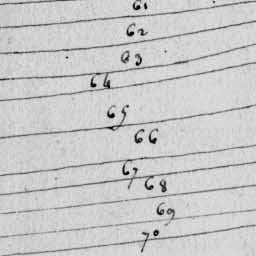 61
62
63
64
65
66
67
68
69
70